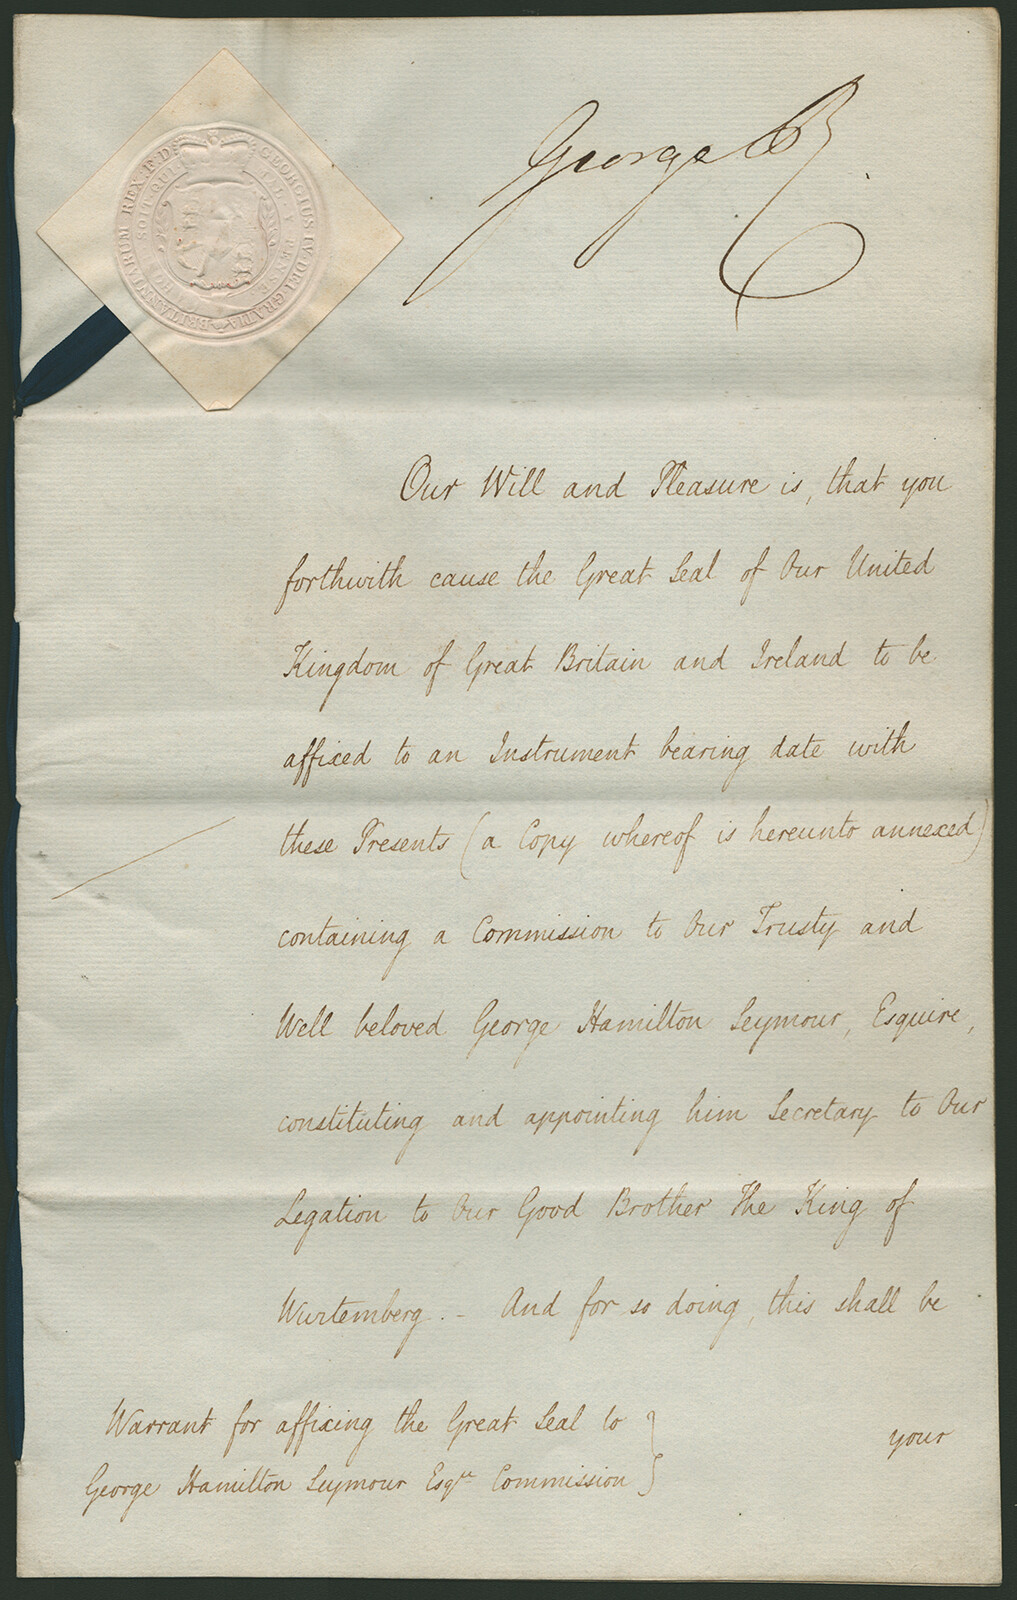 George R
GEORGIUS IV DEI GRATIA BRITANNIARUM REX F.D.
HONI SOIT QUI MAL Y PENSE
Our Will and Pleasure is, that you
forthwith cause the Great Seal of Our United
Kingdom of Great Britain and Ireland to be
affixed to an Instrument bearing date with
these Presents (a Copy whereof is hereunto annexed)
containing a Commission to Our Trusty and
Well beloved George Hamilton Seymour, Esquire,
constituting and appointing him Secretary to Our
Legation to Our Good Brother The King of
Wurtemberg. - And for so doing, this shall be
your
Warrant for affixing the Great Seal to
George Hamilton Seymour Esqre Commission